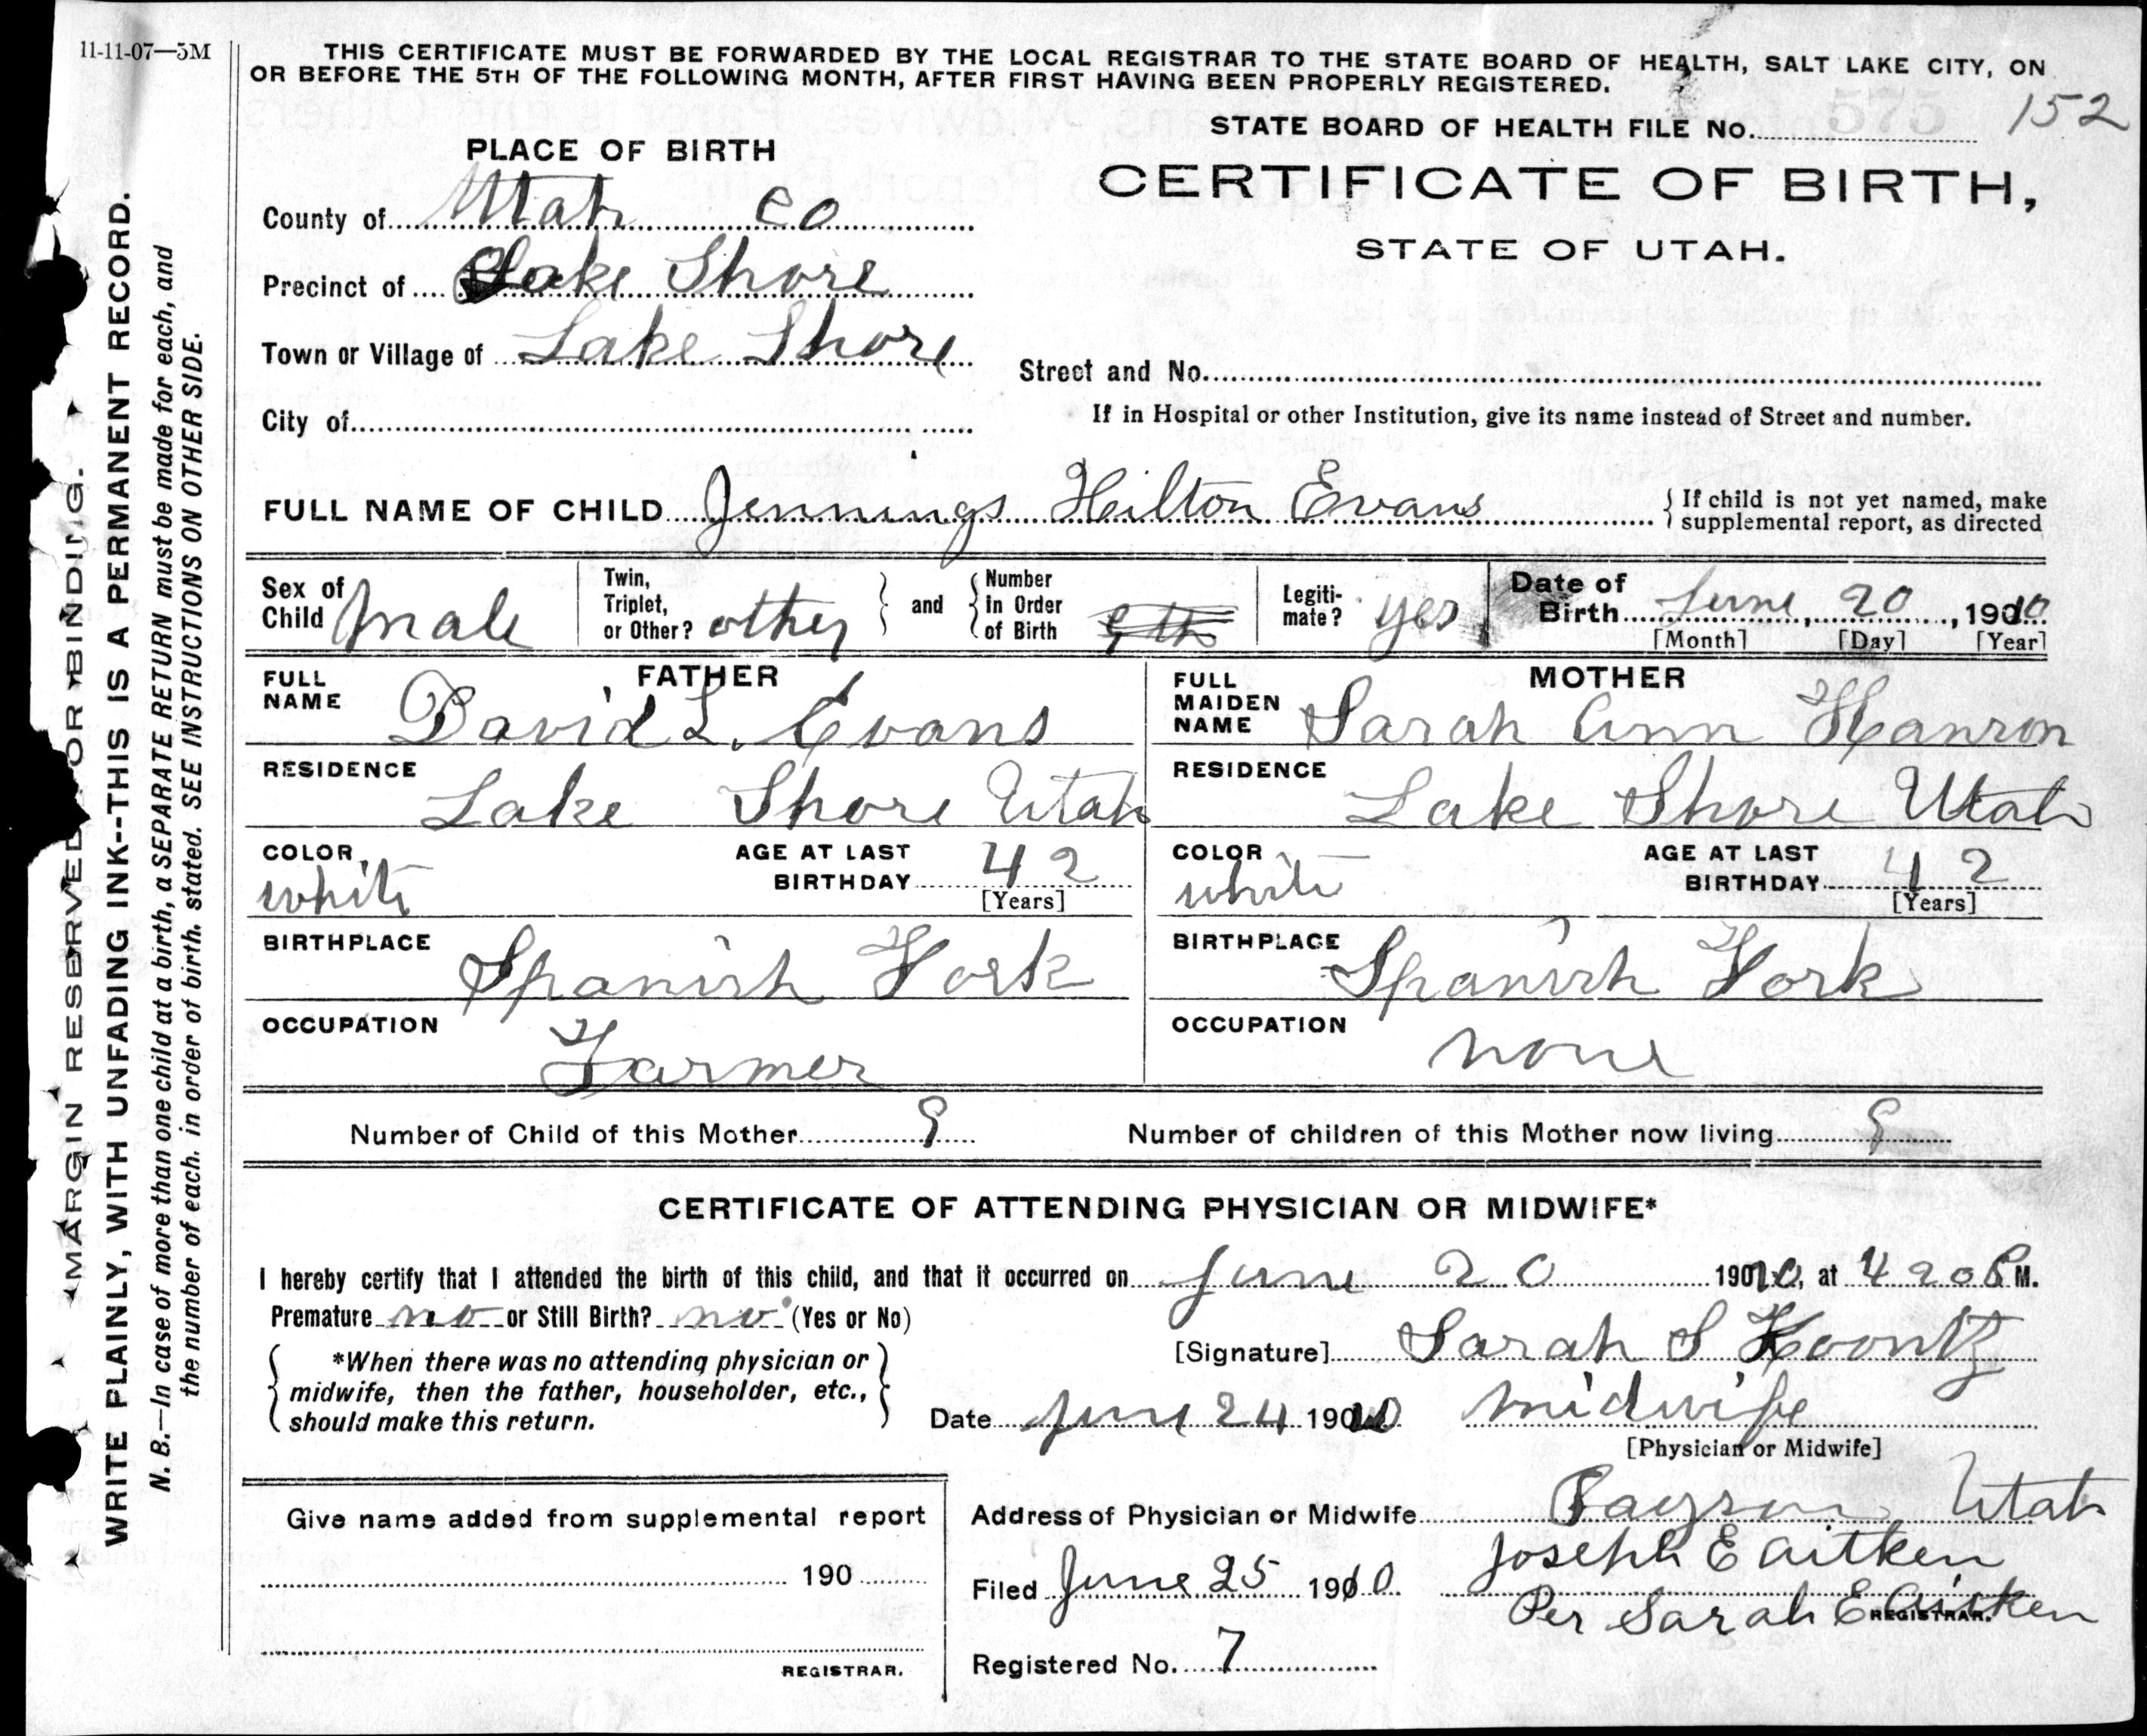 11-11-07—5M
THIS CERTIFICATE MUST BE FORWARDED BY THE LOCAL REGISTRAR TO THE STATE BOARD OF HEALTH, SALT LAKE CITY, ON
OR BEFORE THE 5TH OF THE FOLLOWING MONTH, AFTER FIRST HAVING BEEN PROPERLY REGISTERED.
STATE BOARD OF HEALTH FILE No. 152
CERTIFICATE OF BIRTH,
STATE OF UTAH.
PLACE OF BIRTH
County of Utah Co
Precinct of Lake Shore
Town or Village of Lake Shore
City of
Street and No.
If in Hospital or other Institution, give its name instead of Street and number.
FULL NAME OF CHILD Jennings Hilton Evans
If child is not yet named, make
supplemental report, as directed
Sex of Child male
Twin, Triplet, or Other? other
and
Number in Order of Birth 9th
Legiti-mate? yes
Date of Birth June, 20, 1910
[Month] [Day] [Year]
FATHER
FULL NAME David L. Evans
RESIDENCE Lake Shore Utah
COLOR white
AGE AT LAST BIRTHDAY 42
[Years]
BIRTHPLACE Spanish Fork
OCCUPATION Farmer
MOTHER
FULL MAIDEN NAME Sarah Ann
RESIDENCE Lake Shore Utah
COLOR white
AGE AT LAST BIRTHDAY 42
[Years]
BIRTHPLACE Spanish Fork
OCCUPATION none
Number of Child of this Mother 9
Number of children of this Mother now living 9
CERTIFICATE OF ATTENDING PHYSICIAN OR MIDWIFE*
I hereby certify that I attended the birth of this child, and that it occurred on June 20 1910, at 4 20 P M.
Premature no or Still Birth? no (Yes or No)
*When there was no attending physician or
midwife, then the father, householder, etc.,
should make this return.
[Signature] Sarah S Koontz
Date June 24 1910 midwife
[Physician or Midwife]
Address of Physician or Midwife Payson Utah
Filed June 25 1910 Joseph E Aitken
Per Sarah E Aitken
REGISTRAR.
Registered No. 7
Give name added from supplemental report
190
REGISTRAR.
MARGIN RESERVED FOR BINDING.
WRITE PLAINLY, WITH UNFADING INK--THIS IS A PERMANENT RECORD.
N. B.—In case of more than one child at a birth, a SEPARATE RETURN must be made for each, and
the number of each, in order of birth, stated. SEE INSTRUCTIONS ON OTHER SIDE.